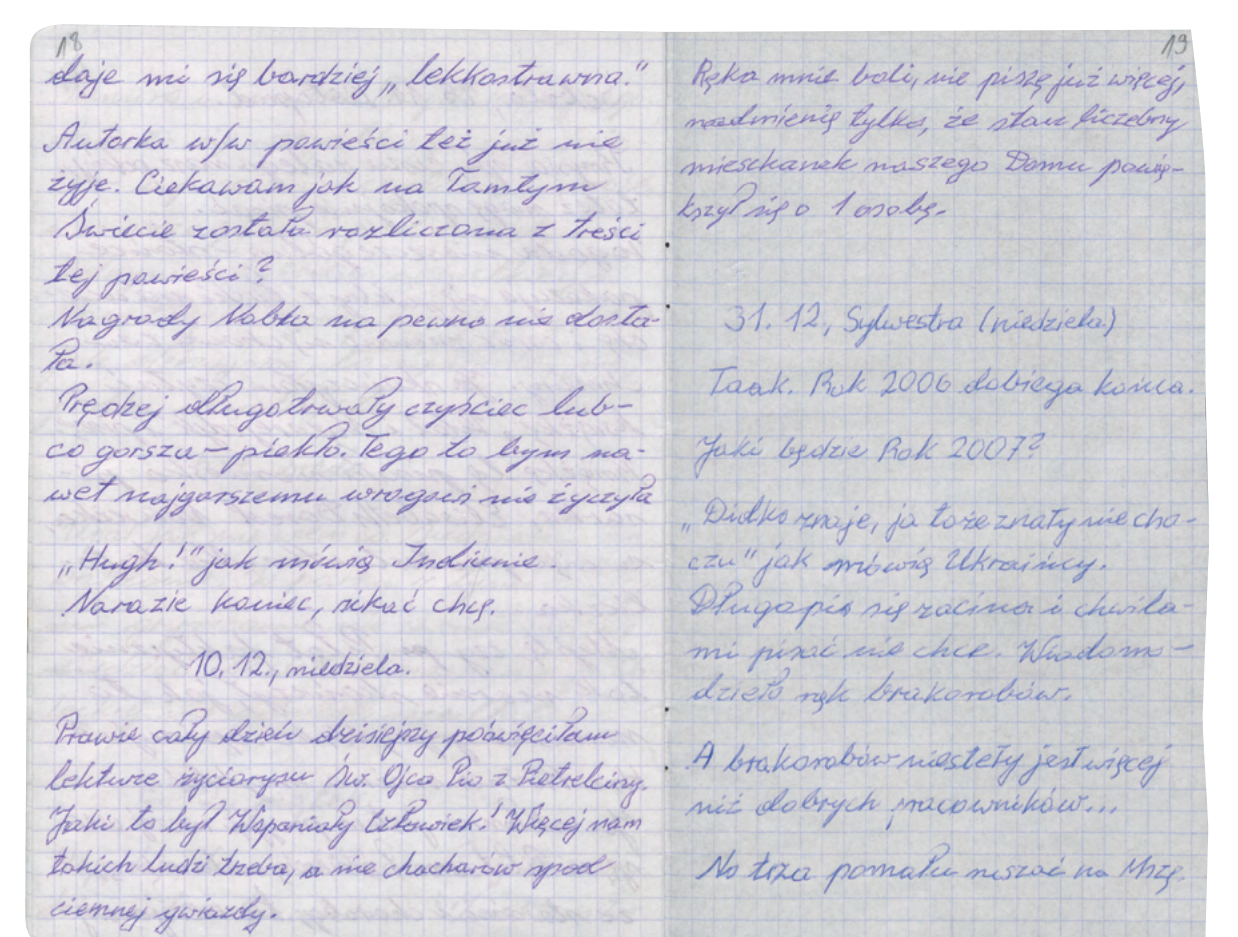 18
daje mi się bardziej „lekkostrawna."
Autorka w/w powieści też już nie
żyje. Ciekawam jak na Tamtym
Świecie została rozliczona z treści
tej powieści?
Nagrody Nobla na pewno nie dosta-
ła.
Prędzej długotrwały czyściec lub-
co gorsza – piekło. Tego to bym na-
wet najgorszemu wrogowi nie życzyła
„Hugh!" jak mówią Indianie.
Narazie koniec, sikać chcę.
10.12., niedziela.
Prawie cały dzień dzisiejszy poświęciłam
lekturze życiorysu Św. Ojca Pio z Pietrelciny.
Jaki to był Wspaniały Człowiek! Więcej nam
takich ludzi trzeba, a nie chacharów spod
ciemnej gwiazdy.
19
Ręka mnie boli, nie piszę już więcej,
nadmienię tylko, że stan liczebny
mieszkanek naszego Domu powię-
kszył się o 1 osobę.
31.12., Sylwestra (niedziela)
Taak. Rok 2006 dobiega końca.
Jaki będzie Rok 2007?
„Didko znaje, ja toże znaty nie cho-
czu" jak mówią Ukraińcy.
Długopis się zacina i chwila-
mi pisać nie chce. Wiadomo –
dzieło rąk brakorobów.
A brakorobów niestety jest więcej
niż dobrych pracowników...
No trza pomału ruszać na Mszę.